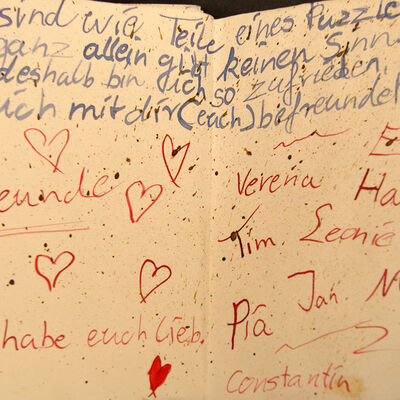 sind wie Teile eines Puzzle
ganz allein gibt keinen Sinn
deshalb bin ich so zufrieden,
ich mit dir (euch) befreundet
eunde
habe euch lieb.
E
Verena Ha
Tim Leonie
Pia Jan N
Constantin